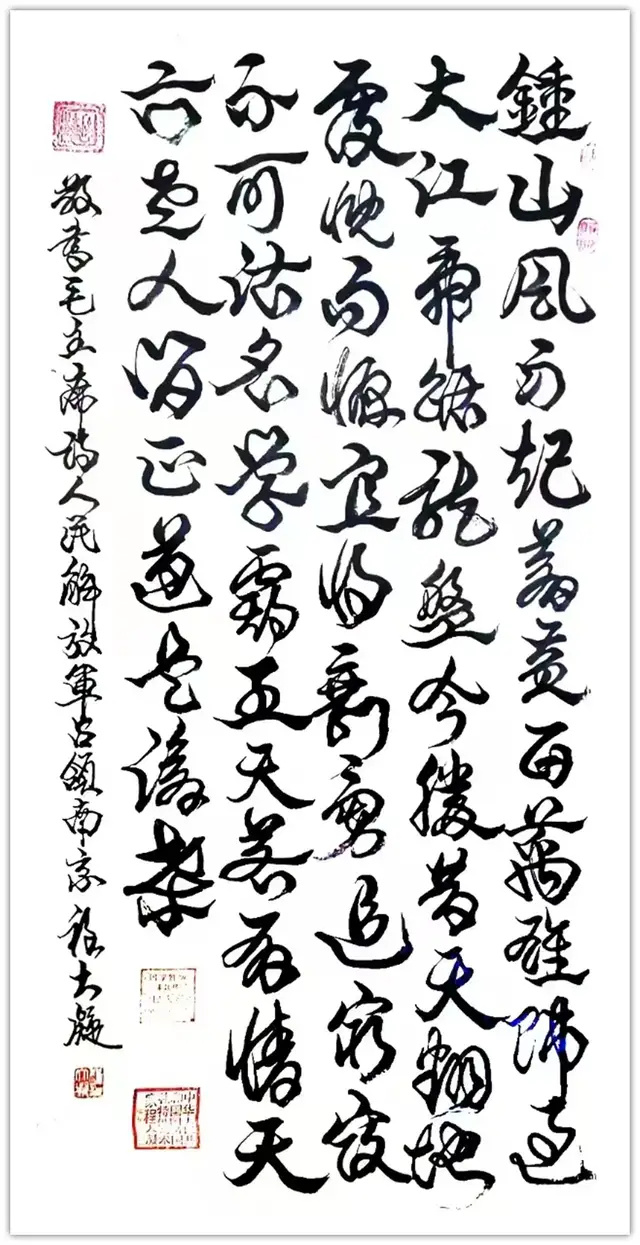 鍾山风雨起蒼黄百萬雄師過
大江虎踞龍盤今勝昔天翻地
覆慨而慷宜將剩勇追窮寇
不可沽名学霸王天若有情天
亦老人间正道是滄桑
敬書毛主席詩人民解放軍占領南京程大